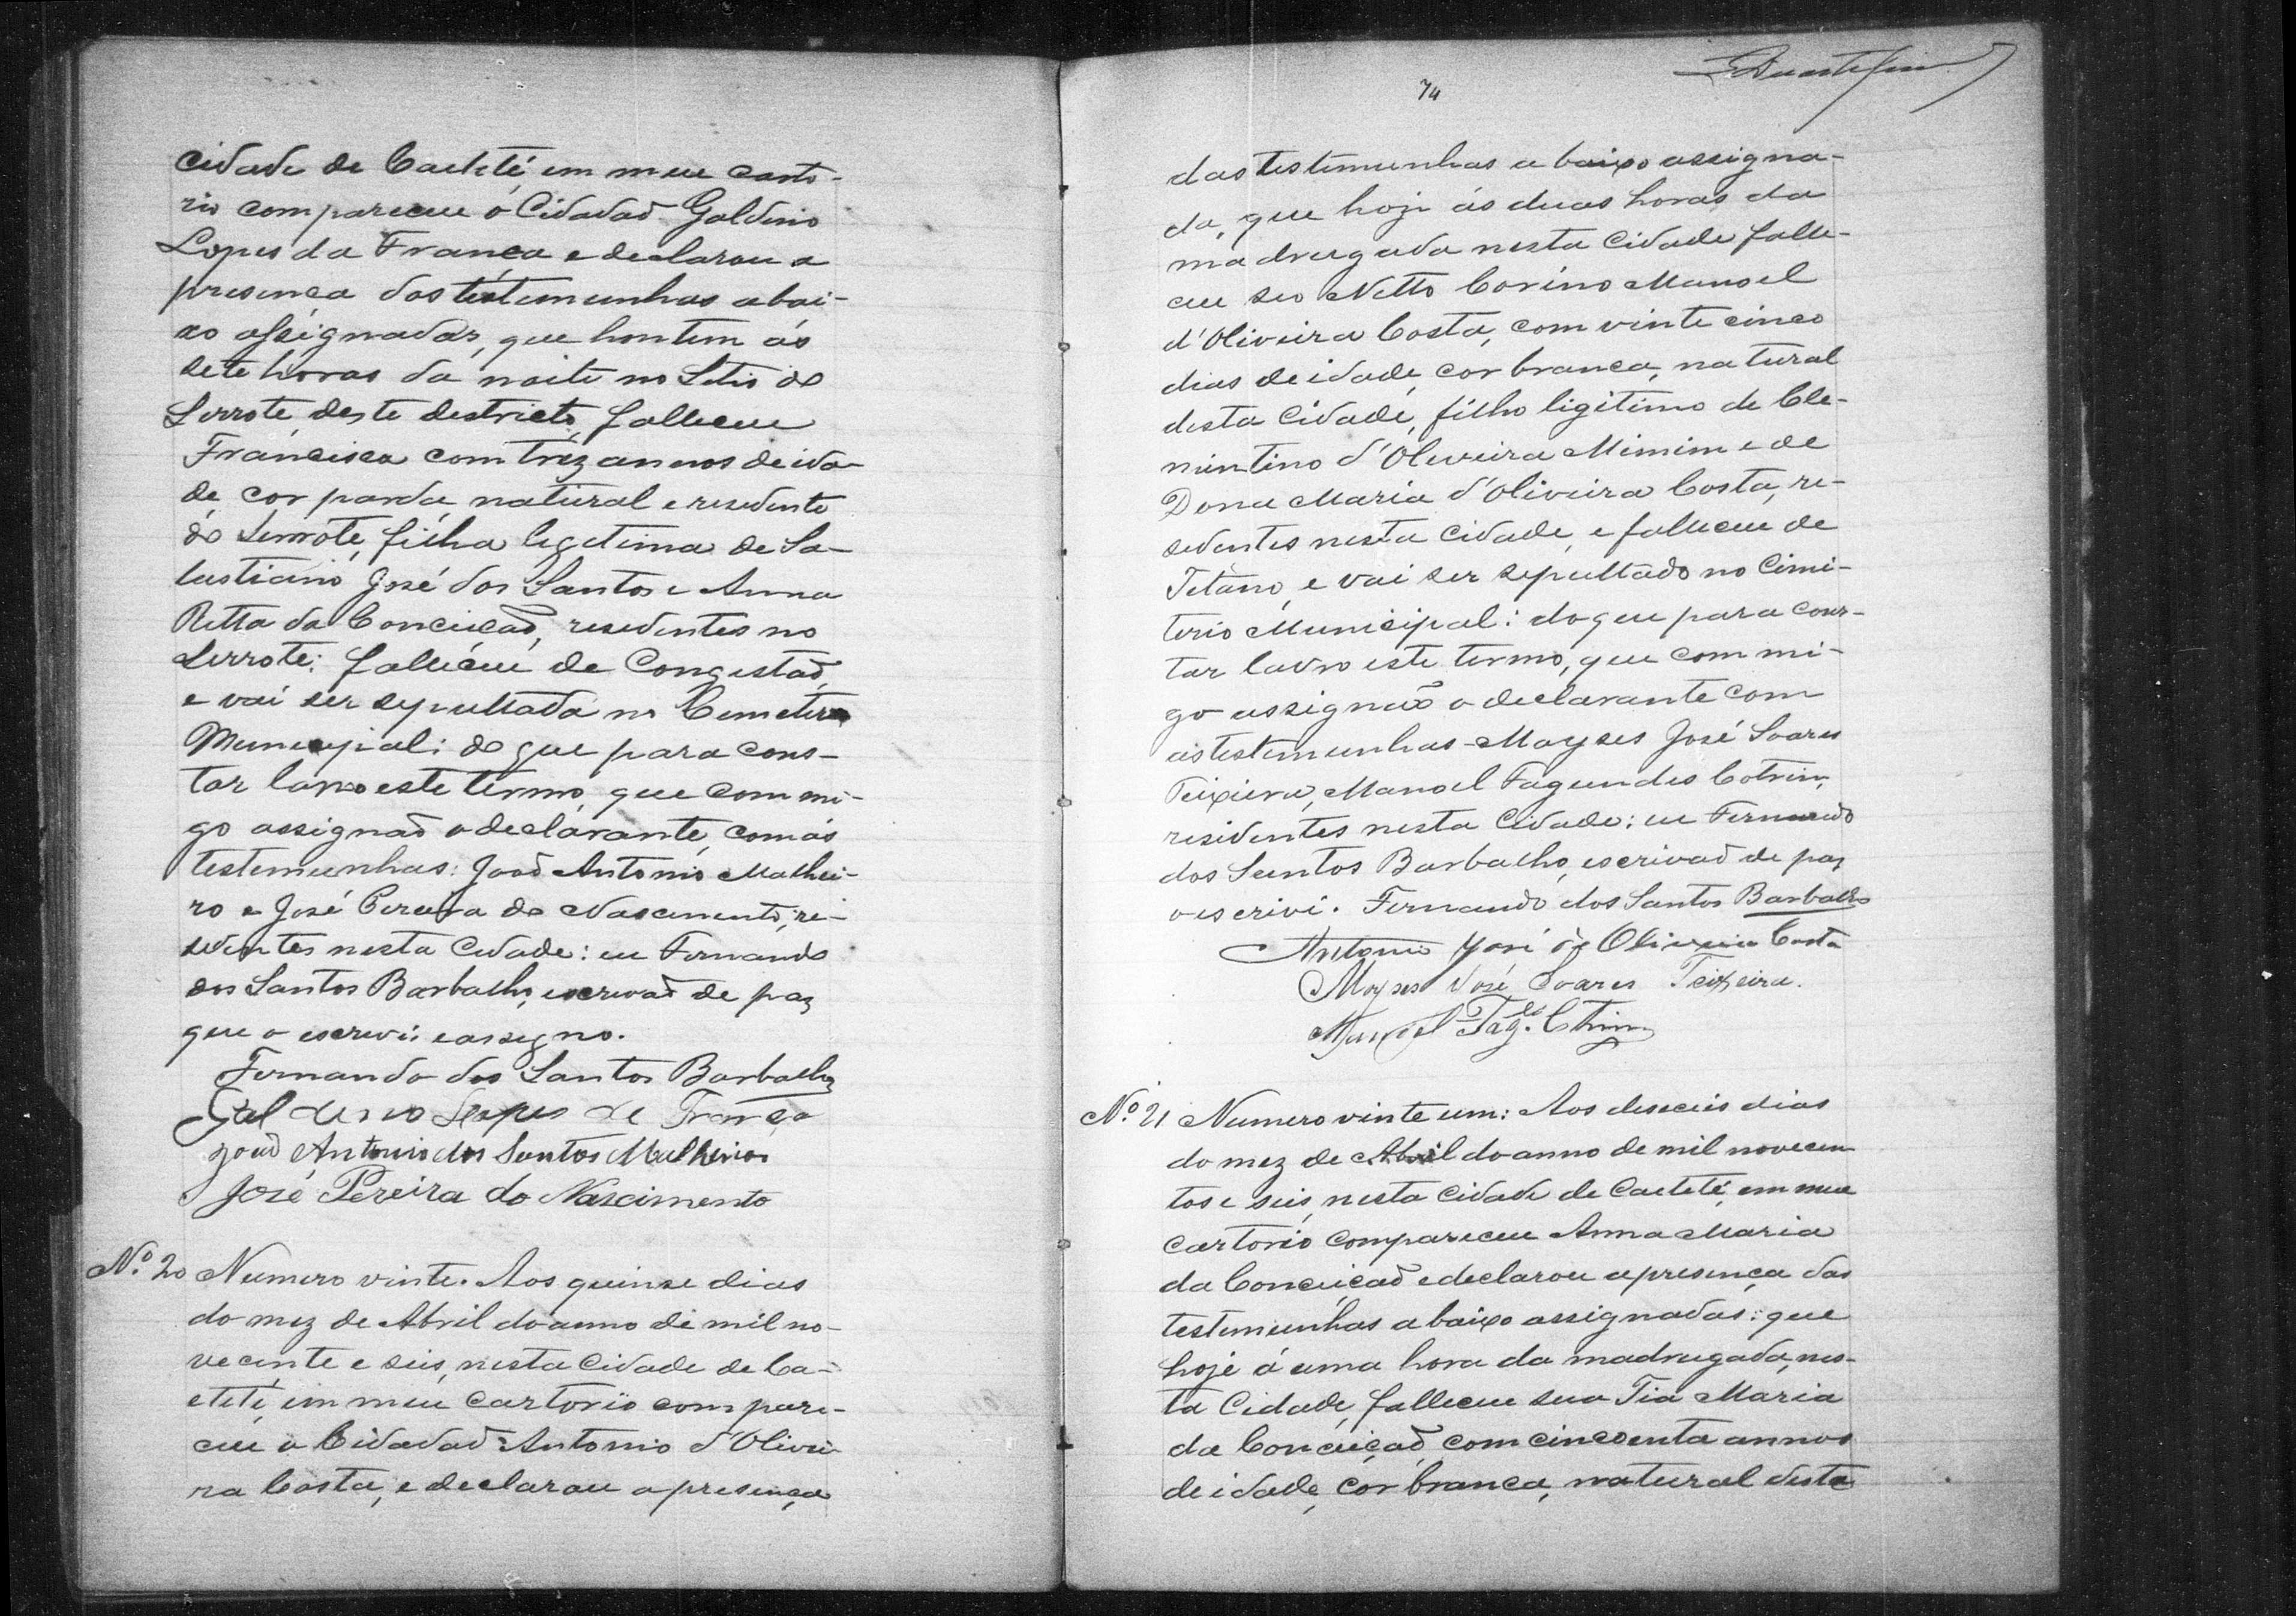 cidade de Caeteté em meu carto-
rio compareceu o Cidadaõ Galdino
Lopes da França e declarou a
presença das testemunhas abai-
xo assignadas, que hontem ás
sete horas da noite no Sitio do
Serrote, deste destricto, falleceu
Francisca com trez annos de ida-
de, cor parda, natural e resedente
do Serrote, filha legetima de Sa-
lustiano José dos Santos e Anna
Ritta da Conceicaõ, resedentes no
Serrote: falleceu de Congestaõ,
e vai ser sepultada no Cemeterio
Municipial: do que para cons-
tar lavro este termo, que commi-
go assignaõ o declarante, com as
testemunhas: Joaõ Antonio Malhei-
ro e José Pereira do Nascimento, re-
sedentes nesta Cidade: eu Fernando
dos Santos Barbalho, escrevaõ de paz
que o escrevi: e assegno.
Fernando dos Santos Barbalho
Galdeno Lopes de França
Joaõ Antonio dos Santos Malheiros
José Pereira do Nascimento
Nº 20 Numero vinte. Aos quinse dias
do mez de Abril do anno de mil no-
vecente e seis, nesta Cidade de Ca-
eteté, em meu cartorio compare-
ceu o Cidadaõ Antonio d'Olivei-
ra Costa, e declarou a presença
74
das testemunhas abaixo assigna-
da, que hoje ás duas horas da
madrugada nesta Cidade falle-
ceu seo Netto Corino Manoel
d'Oliveira Costa, com vinte cinco
dias de idade, cor branca, natural
desta Cidade, filho ligitimo de Cle-
mintino d'Oliveira Mimim e de
Dona Maria d'Oliveira Costa, re-
sedentes nesta Cidade, e falleceu de
Tetano, e vai ser sepultado no Cimi-
terio Municipal: do que para cons-
tar lavro este termo, que commi-
go assignaõ o declarante com
as testemunhas - Moyses José Soares
Teixeira, Manoel Fagundes Cotrim,
residentes nesta Cidade: eu Fernando
dos Santos Barbalho, escrivaõ de paz
o escrivi. Fernando dos Santos Barbalho
Antonio José de Oliveira Costa
Moyses José Soares Teixeira.
Manoel Fag.es Cotrim
Nº 21 Numero vinte um: Aos deseceis dias
do mez de Abril do anno de mil novecen
tos e seis, nesta Cidade de Caeteté, em meu
cartorio compareceu Anna Maria
da Conceiçaõ e declarou a presença das
testemunhas abaixo assignadas: que
hoje á uma hora da madrugada, nes-
ta Cidade, falleceu sua Tia Maria
da Conceiçaõ, com cincoenta annos
de idade, cor branca, natural desta